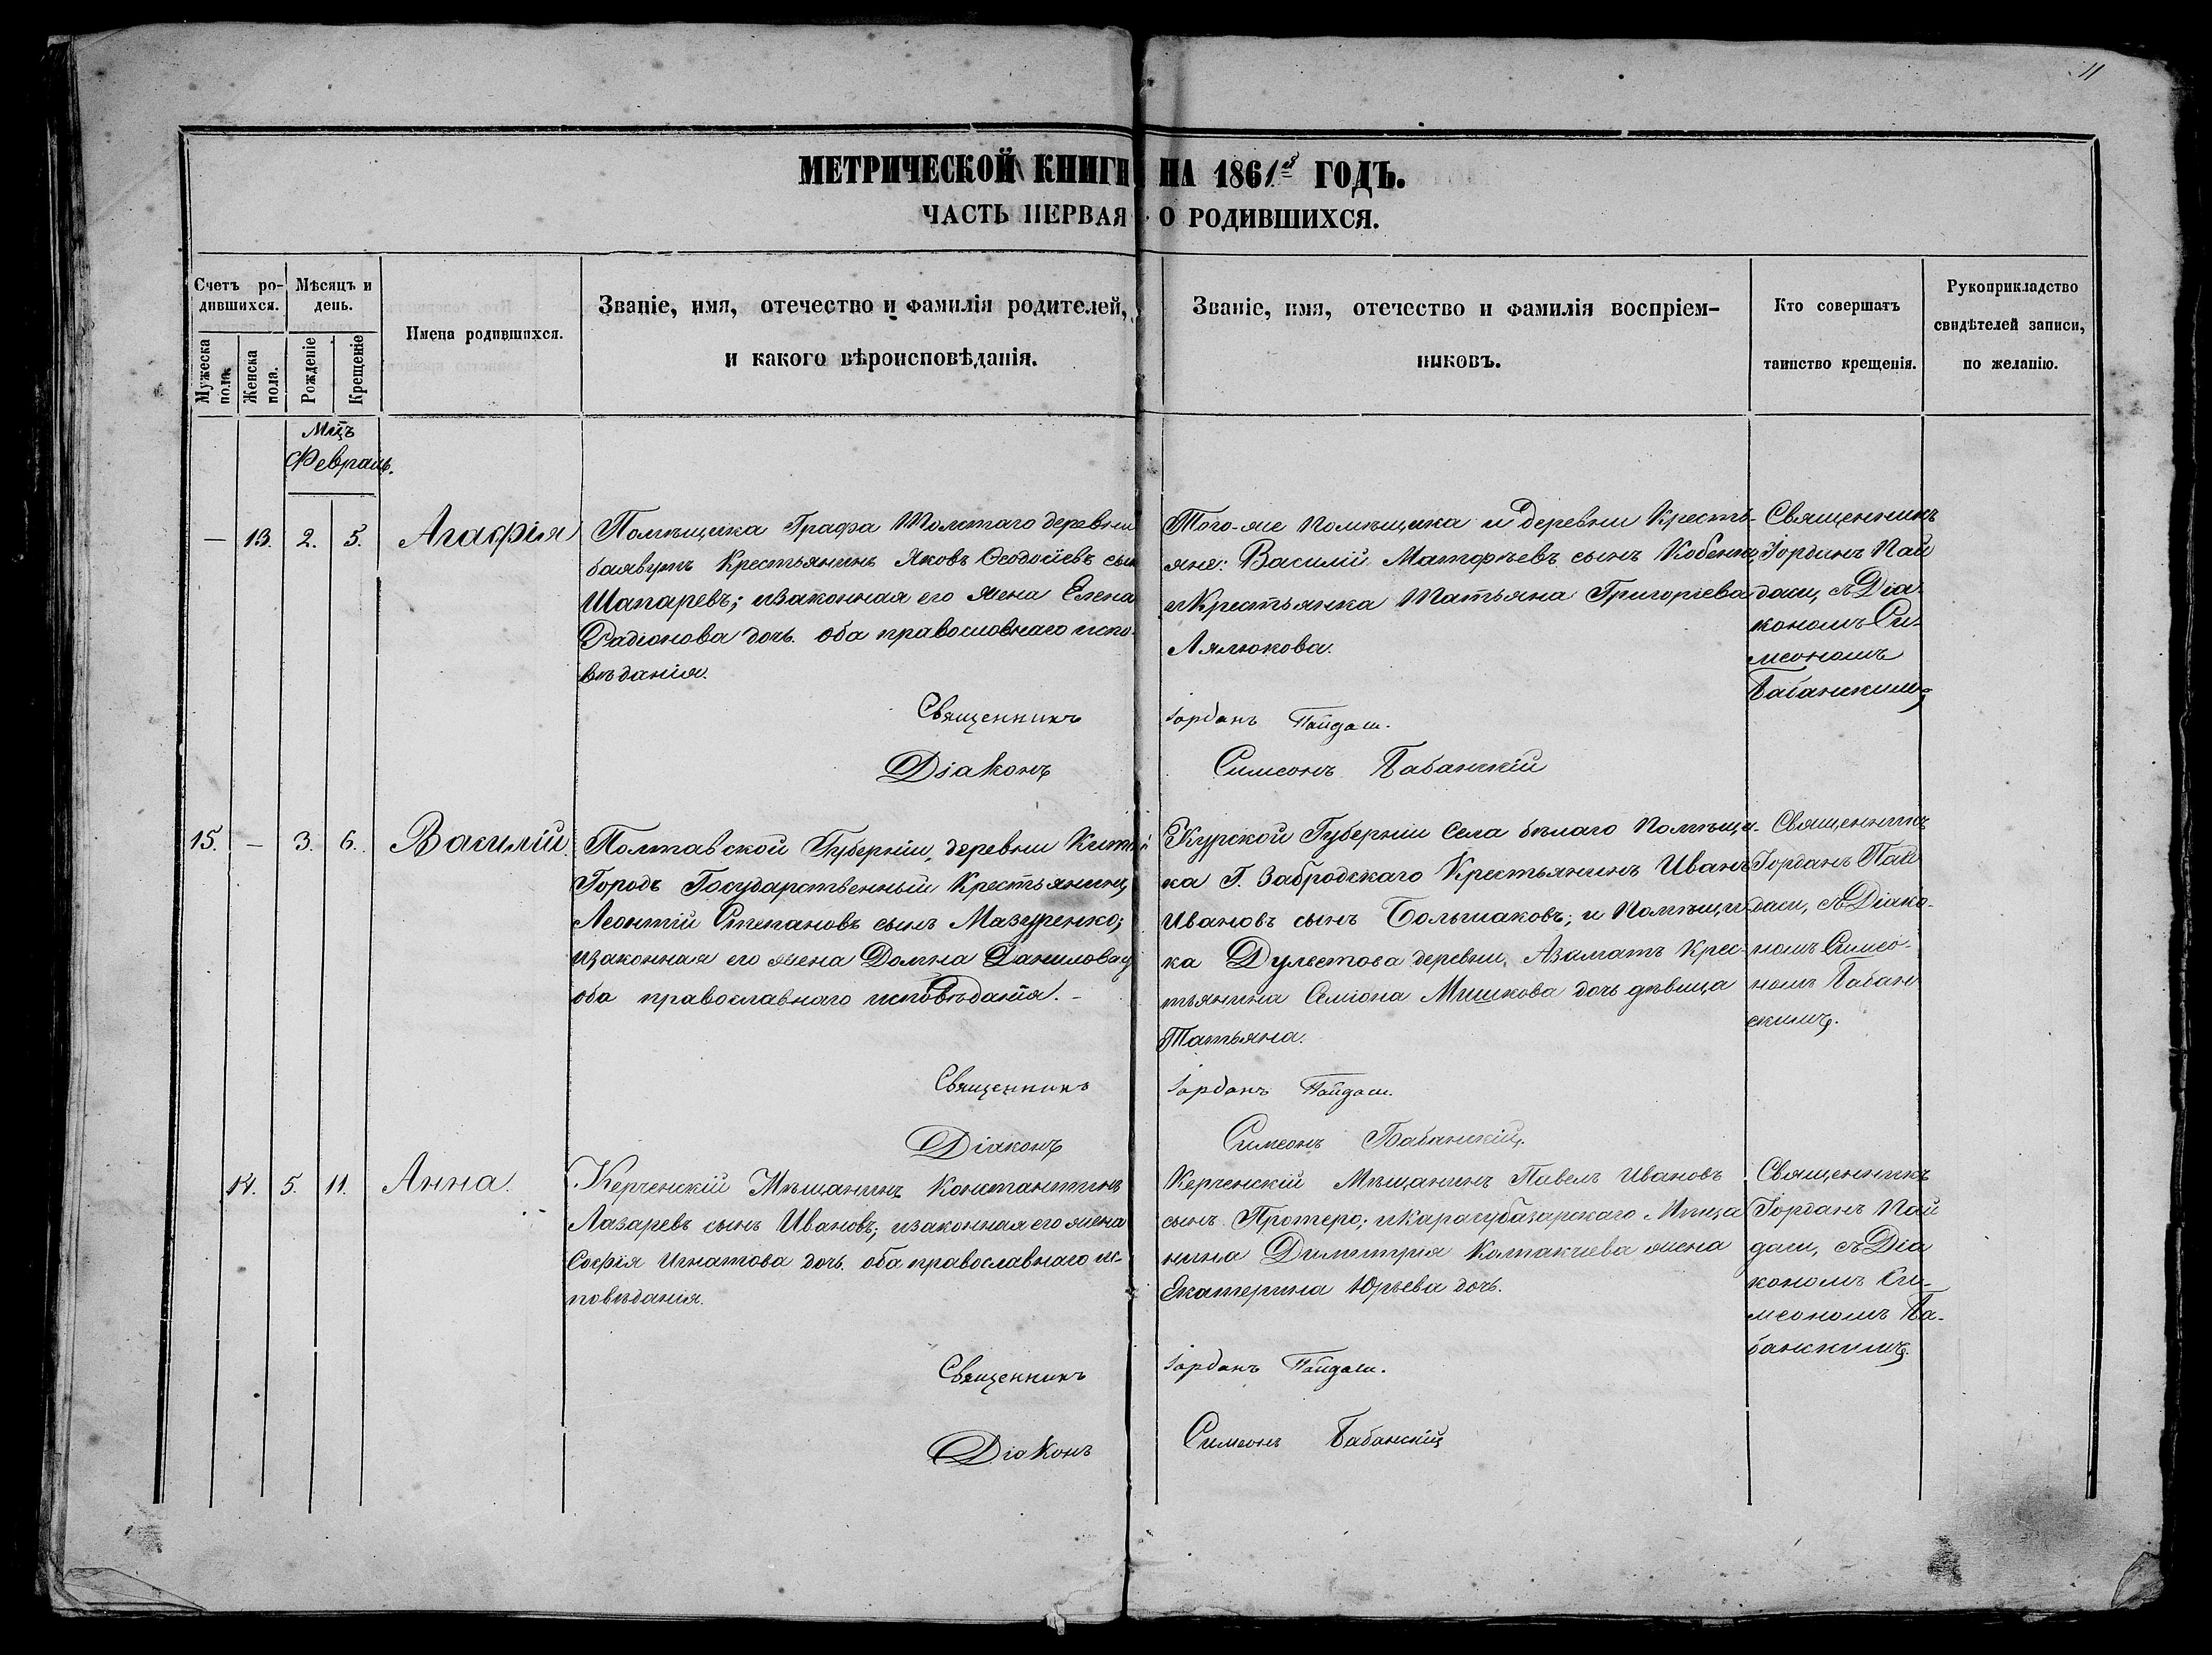 11
МЕТРИЧЕСКОЙ КНИГИ НА 1861й ГОДЪ.
ЧАСТЬ ПЕРВАЯ О РОДИВШИХСЯ.
Счетъ ро-
дившихся.
Мужеска пола.
Женска пола.
Мѣсяцъ и
день.
Рожденіе
Крещеніе
Имена родившихся.
Званіе, имя, отечество и фамилія родителей,
и какого вѣроисповѣданія.
Званіе, имя, отечество и фамилія воспріем-
никовъ.
Кто совершатъ
таинство крещенія.
Рукоприкладство
свидѣтелей записи,
по желанію.
Мцъ
Февраль.
— 13. 2. 5. Агафія
Помѣщика Графа Толстаго деревни
Крестьянинъ Яковъ Ѳеодосіевъ сынъ
Шапаревъ; изаконная его жена Елена
Радіонова дочь. оба православнаго испо-
вѣданія.
Того-же помѣщика и деревни Кресть-
яне: Василій Матфѣевъ сынъ
иКрестьянка Татьяна Григоріева
Лялюкова.
Священникъ
Іорданъ Пай
даси, съ Діа
кономъ Си-
меономъ
Бабанскимъ
Священникъ Іорданъ Пайдаси.
Діаконъ Симеонъ Бабанскій
15. — 3. 6. Василій.
Полтавской Губерніи, деревни Китай
Городъ Государственный Крестьянинъ
Леонтій Степановъ сынъ Мазуренко;
изаконная его жена Домна Данилова
оба православнаго исповѣданія. -
Курской Губерніи Села бѣлаго Помѣщи-
ка Г. Забродскаго Крестьянинъ Иванъ
Ивановъ сынъ Большаковъ; и Помѣщи-
ка деревни Азаматъ Крес-
тьянина Семіона Мишкова дочь дѣвица
Татьяна.
Священникъ
Іорданъ Пай
даси, съ Діако-
номъ Симео-
номъ Бабан
скимъ.
Священникъ Іорданъ Пайдаси.
Діаконъ Симеонъ Бабанскій.
14. 5. 11. Анна.
Керченскій Мѣщанинъ Константинъ
Лазаревъ сынъ Ивановъ; изаконная его жена
Софія Игнатова дочь. оба православнаго ис-
повѣданія.
Керченскій Мѣщанинъ Павелъ Ивановъ
сынъ Протеро; иКарасубазарскаго Мѣща
нина Димитрія жена
Екатерина Юрьева дочь.
Священникъ
Іорданъ Пай
даси, съ Діа
кономъ Си-
меономъ Ба-
банскимъ.
Священникъ Іорданъ Пайдаси.
Діаконъ Симеонъ Бабанскій